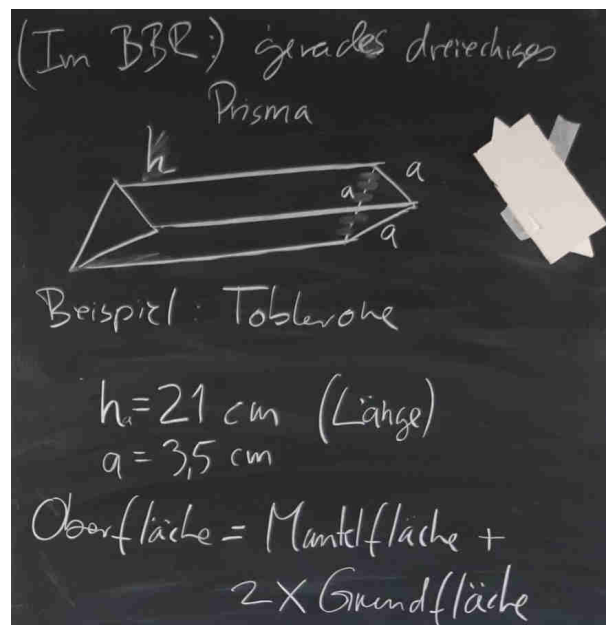 (Im BBR:) gerades dreieckiges
Prisma
h
a
a
a
Beispiel: Toblerone
h = 21 cm (Länge)
a = 3,5 cm
Oberfläche = Mantelfläche +
2 X Grundfläche